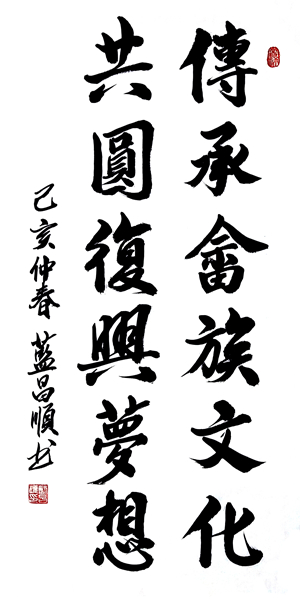 傳承畲族文化
共圓復興夢想
己亥仲春藍昌順书